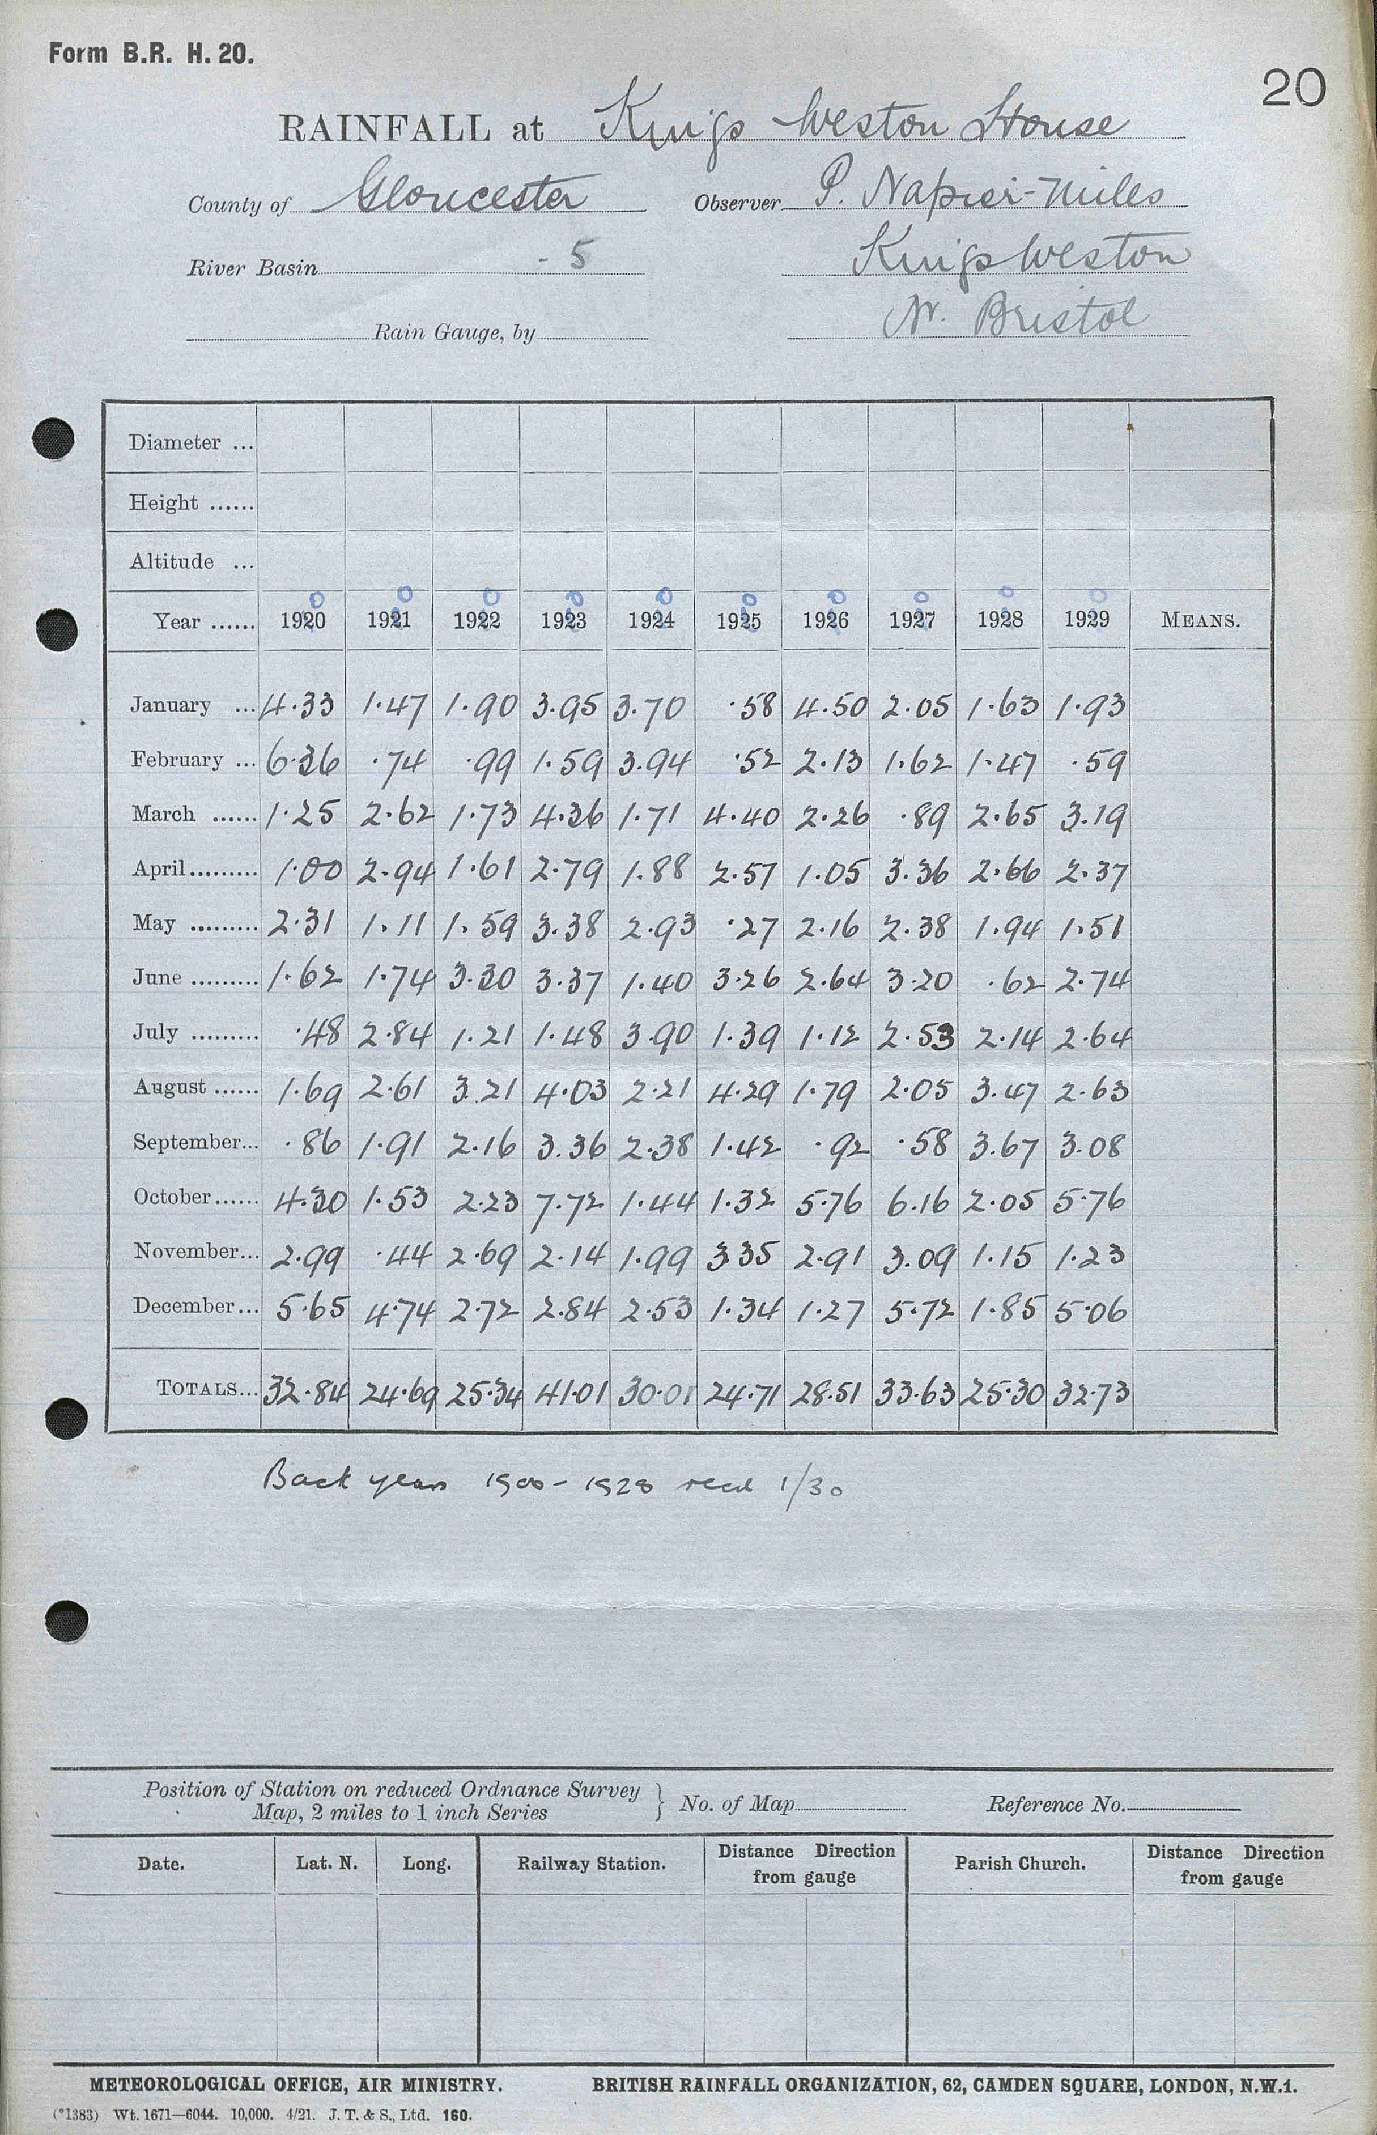 Form B.R. H. 20.
20
RAINFALL at Kings Weston House
County of Gloucester Observer P. Napier-Miles
River Basin - 5 Kings Weston
Rain Gauge, by Nr. Bristol
Diameter ...
Height ......
Altitude ...
0 0 0 0 0 0 0 0 0 0
Year ...... 1920 1921 1922 1923 1924 1925 1926 1927 1928 1929 MEANS.
January ... 4.33 1.47 1.90 3.95 3.70 .58 4.50 2.05 1.63 1.93
February ... 6.36 .74 .99 1.59 3.94 .52 2.13 1.62 1.47 .59
March ...... 1.25 2.62 1.73 4.36 1.71 4.40 2.26 .89 2.65 3.19
April......... 1.00 2.94 1.61 2.79 1.88 2.57 1.05 3.36 2.66 2.37
May ......... 2.31 1.11 1.59 3.38 2.93 .27 2.16 2.38 1.94 1.51
June ......... 1.62 1.74 3.30 3.37 1.40 3.26 2.64 3.20 .62 2.74
July ......... .48 2.84 1.21 1.48 3.90 1.39 1.12 2.53 2.14 2.64
August ...... 1.69 2.61 3.21 4.03 2.21 4.29 1.79 2.05 3.47 2.63
September... .86 1.91 2.16 3.36 2.38 1.42 .92 .58 3.67 3.08
October...... 4.30 1.53 2.23 7.72 1.44 1.32 5.76 6.16 2.05 5.76
November... 2.99 .44 2.69 2.14 1.99 3.35 2.91 3.09 1.15 1.23
December... 5.65 4.74 2.72 2.84 2.53 1.34 1.27 5.72 1.85 5.06
TOTALS... 32.84 24.69 25.34 41.01 30.01 24.71 28.51 33.63 25.30 32.73
Back years 1900-1928 recd 1/30
Position of Station on reduced Ordnance Survey
Map, 2 miles to 1 inch Series } No. of Map Reference No.
Date. Lat. N. Long. Railway Station. Distance Direction Parish Church. Distance Direction
from gauge from gauge
METEOROLOGICAL OFFICE, AIR MINISTRY. BRITISH RAINFALL ORGANIZATION, 62, CAMDEN SQUARE, LONDON, N.W.1.
(*1383) Wt. 1671—6044. 10,000. 4/21. J. T. & S., Ltd. 160.